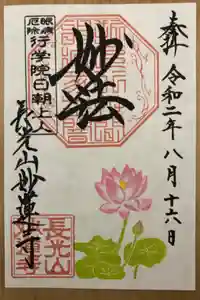 奉拝 令和二年 八月十六日
妙法
眼病
厄除
行学院日朝上人
長光山妙蓮寺
長光山